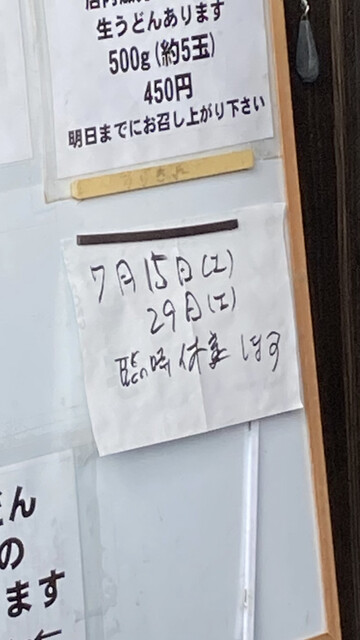 生うどんあります
500g(約5玉)
450円
明日までにお召し上がり下さい
7月15日(土)
29日(土)
臨時休業します
さん
の
ます